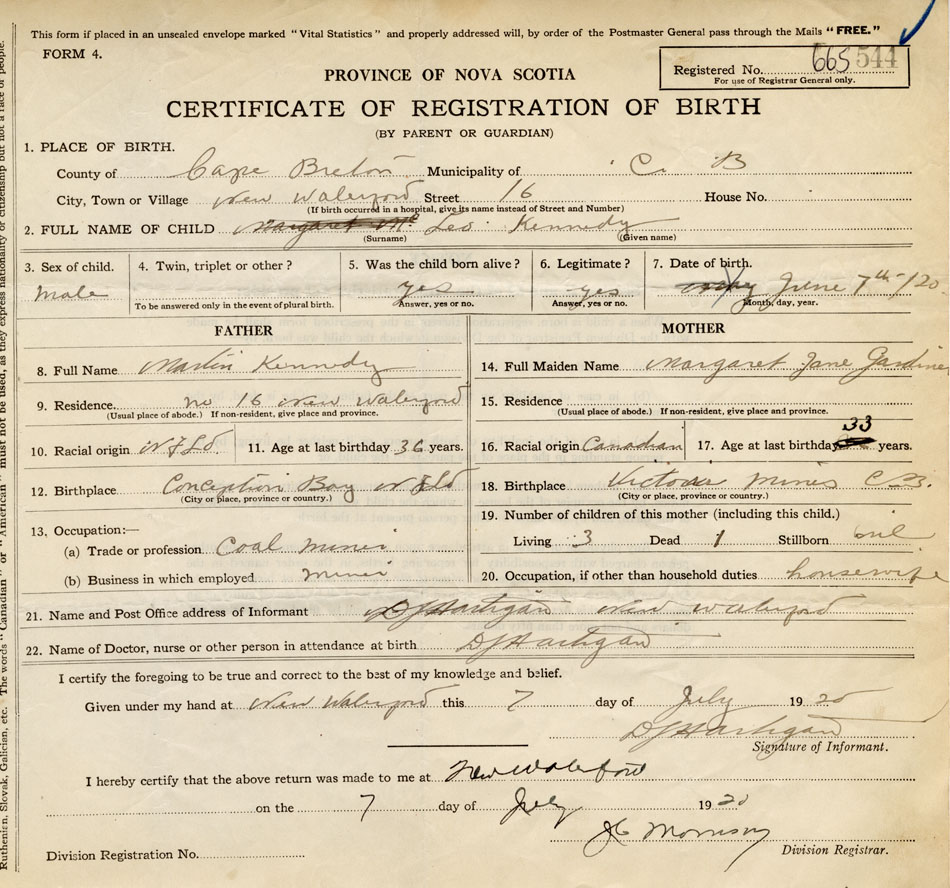 This form if placed in an unsealed envelope marked "Vital Statistics" and properly addressed will, by order of the Postmaster General pass through the Mails "FREE."
FORM 4.
Registered No. 665 544
For use of Registrar General only.
PROVINCE OF NOVA SCOTIA
CERTIFICATE OF REGISTRATION OF BIRTH
(BY PARENT OR GUARDIAN)
1. PLACE OF BIRTH.
County of Cape Breton Municipality of C. B
City, Town or Village New Waterford Street 16 House No.
(If birth occurred in a hospital, give its name instead of Street and Number)
2. FULL NAME OF CHILD Leo Kennedy
(Surname) (Given name)
3. Sex of child. 4. Twin, triplet or other? 5. Was the child born alive? 6. Legitimate? 7. Date of birth.
Male yes yes June 7th /20
To be answered only in the event of plural birth. Answer, yes or no. Answer, yes or no. Month, day, year.
FATHER MOTHER
8. Full Name Martin Kennedy
14. Full Maiden Name Margaret Jane Gardiner
9. Residence. no 16 New Waterford
(Usual place of abode.) If non-resident, give place and province.
15. Residence
(Usual place of abode.) If non-resident, give place and province.
10. Racial origin Nfld. 11. Age at last birthday 36 years.
16. Racial origin Canadian 17. Age at last birthday 33 years.
12. Birthplace Conception Bay Nfld
(City or place, province or country.)
18. Birthplace Victoria Mines C.B.
(City or place, province or country.)
13. Occupation:—
(a) Trade or profession Coal Miner
(b) Business in which employed Miner
19. Number of children of this mother (including this child.)
Living 3 Dead 1 Stillborn nil
20. Occupation, if other than household duties housewife
21. Name and Post Office address of Informant DJ Hartigan New Waterford
22. Name of Doctor, nurse or other person in attendance at birth DJ Hartigan
I certify the foregoing to be true and correct to the best of my knowledge and belief.
Given under my hand at New Waterford this 7 day of July 1920
DJ Hartigan
Signature of Informant.
I hereby certify that the above return was made to me at New Waterford
on the 7 day of July 1920
Morrison
Division Registrar.
Division Registration No.
Ruthenien, Slovak, Galician, etc. The words "Canadian" or "American" must not be used, as they express nationality or citizenship but not a race or people.